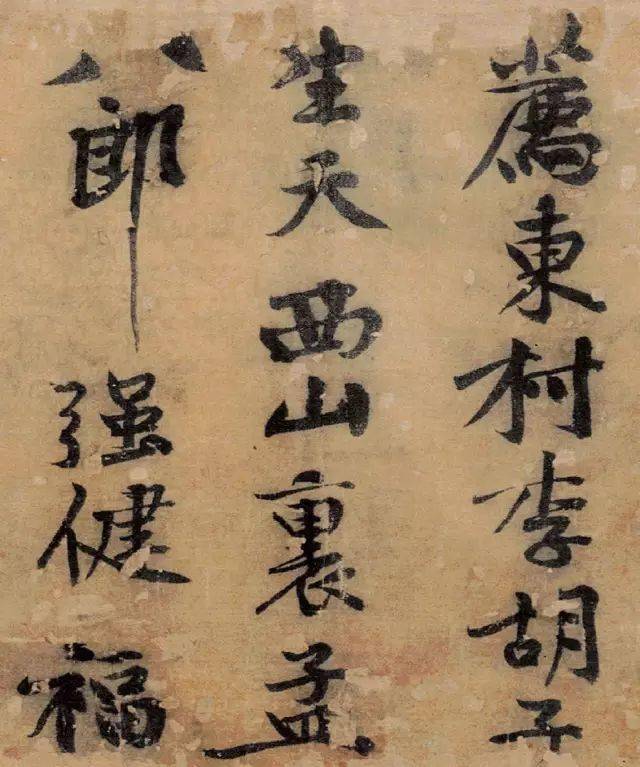 薦東村李胡子
生天西山裏孟
八郎强健福